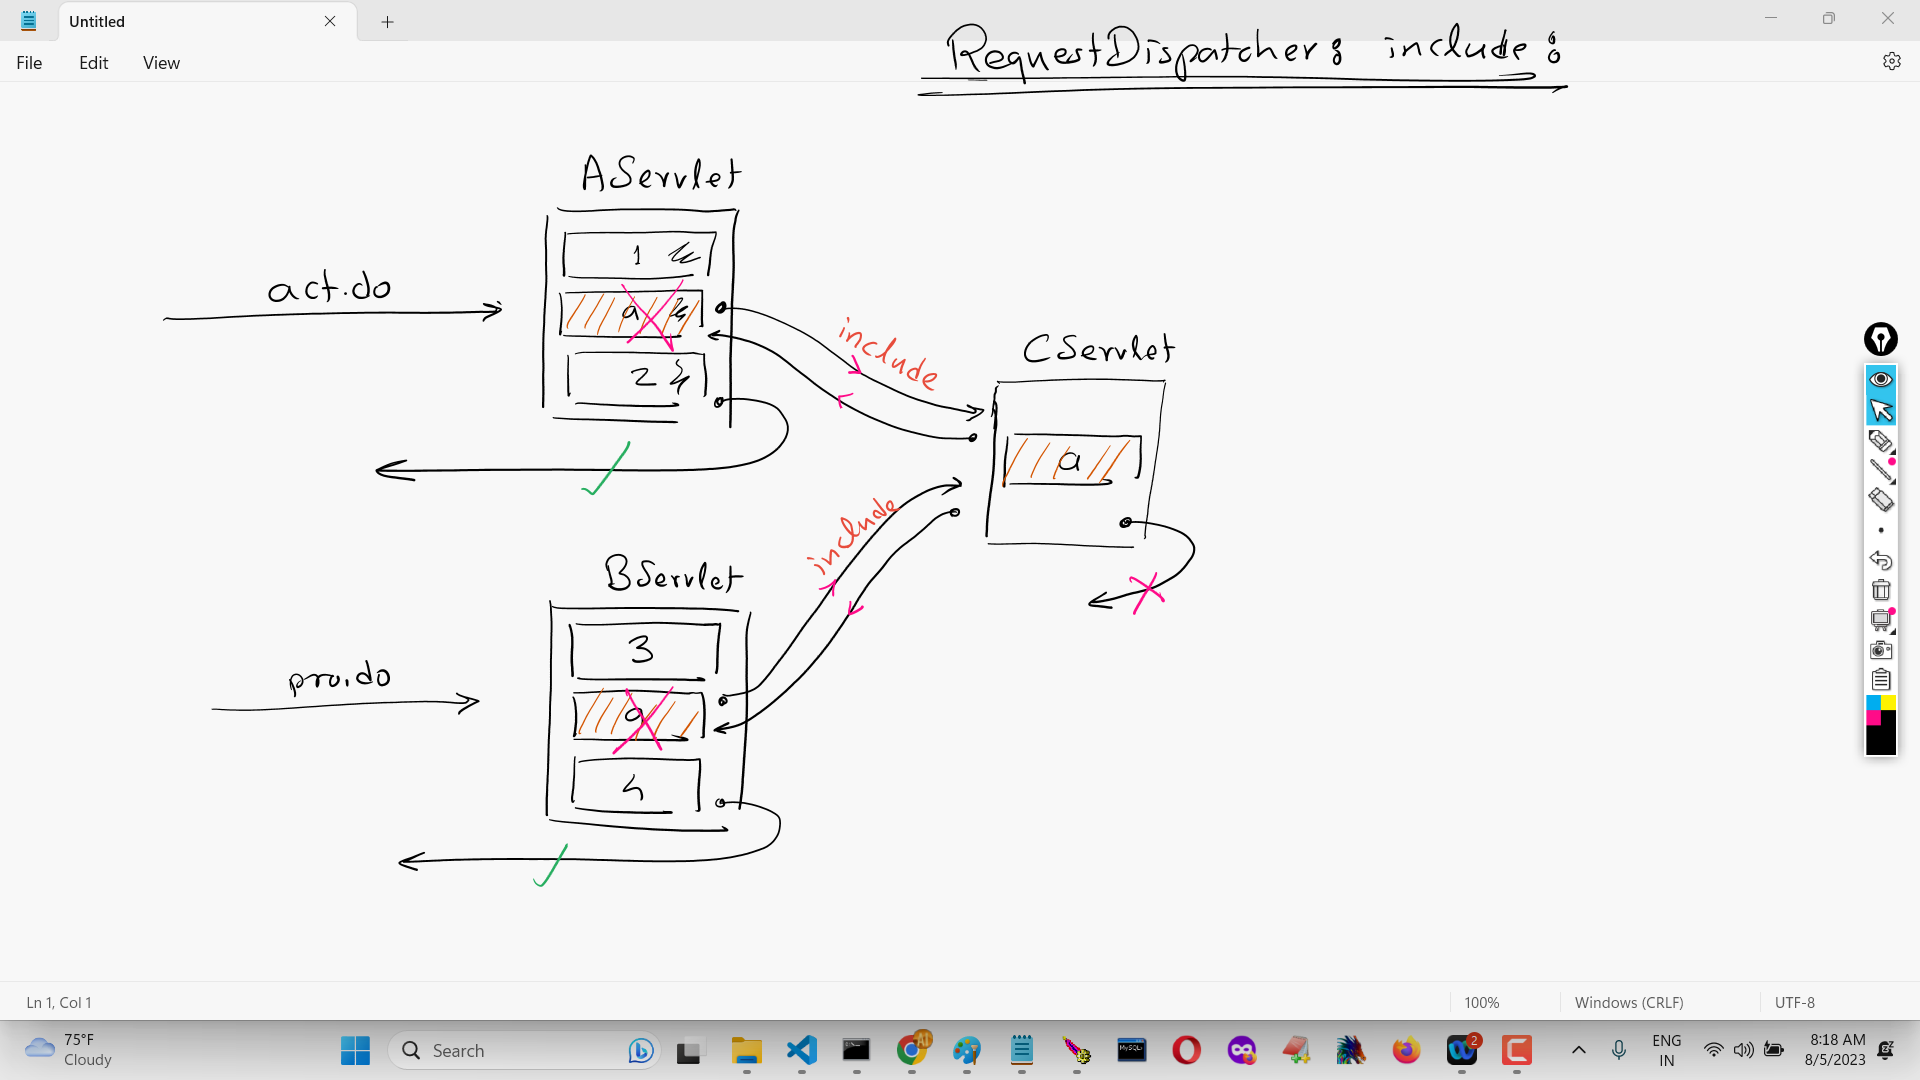 Untitled
File Edit View
RequestDispatcher: include:
AServlet
1
act.do
a
include
CServlet
2
a
include
BServlet
3
pro.do
a
4
Ln 1, Col 1 100% Windows (CRLF) UTF-8
75°F
Cloudy
Search
AI
MySQL
2
ENG
IN
8:18 AM
8/5/2023